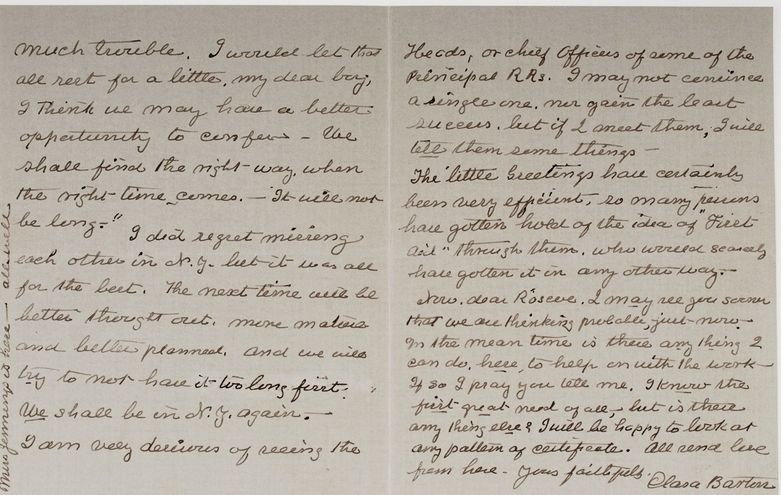 much trouble. I would let that
all rest for a little, my dear boy,
I think we may have a better
opportunity to confer – We
shall find the right way, when
the right time comes. – It will not
be long –"
I did regret missing
each other in N.Y. but it was all
for the best. The next time will be
better thought out, more mature
and better planned, and we will
try to not have it too long first.
We shall be in N.Y. again. –
I am very desirous of seeing the
Miss Jennings is here – all well
Heads, or chief Officers of some of the
Principal RRs. I may not convince
a single one, nor gain the least
success, but if I meet them, I will
tell them some things –
The little Greetings have certainly
been very efficient, so many persons
have gotten hold of the idea of "First
Aid" through them, who would scarcely
have gotten it in any other way. –
Now, dear Roscoe, I may see you sooner
that we are thinking probable, just now –
In the mean time is there any thing I
can do, here, to help on with the work –
If so I pray you tell me. I know the
first great need of all, but is there
any thing else? I will be happy to look at
any pattern of certificate. All send love
from here – Yours faithfully.
Clara Barton